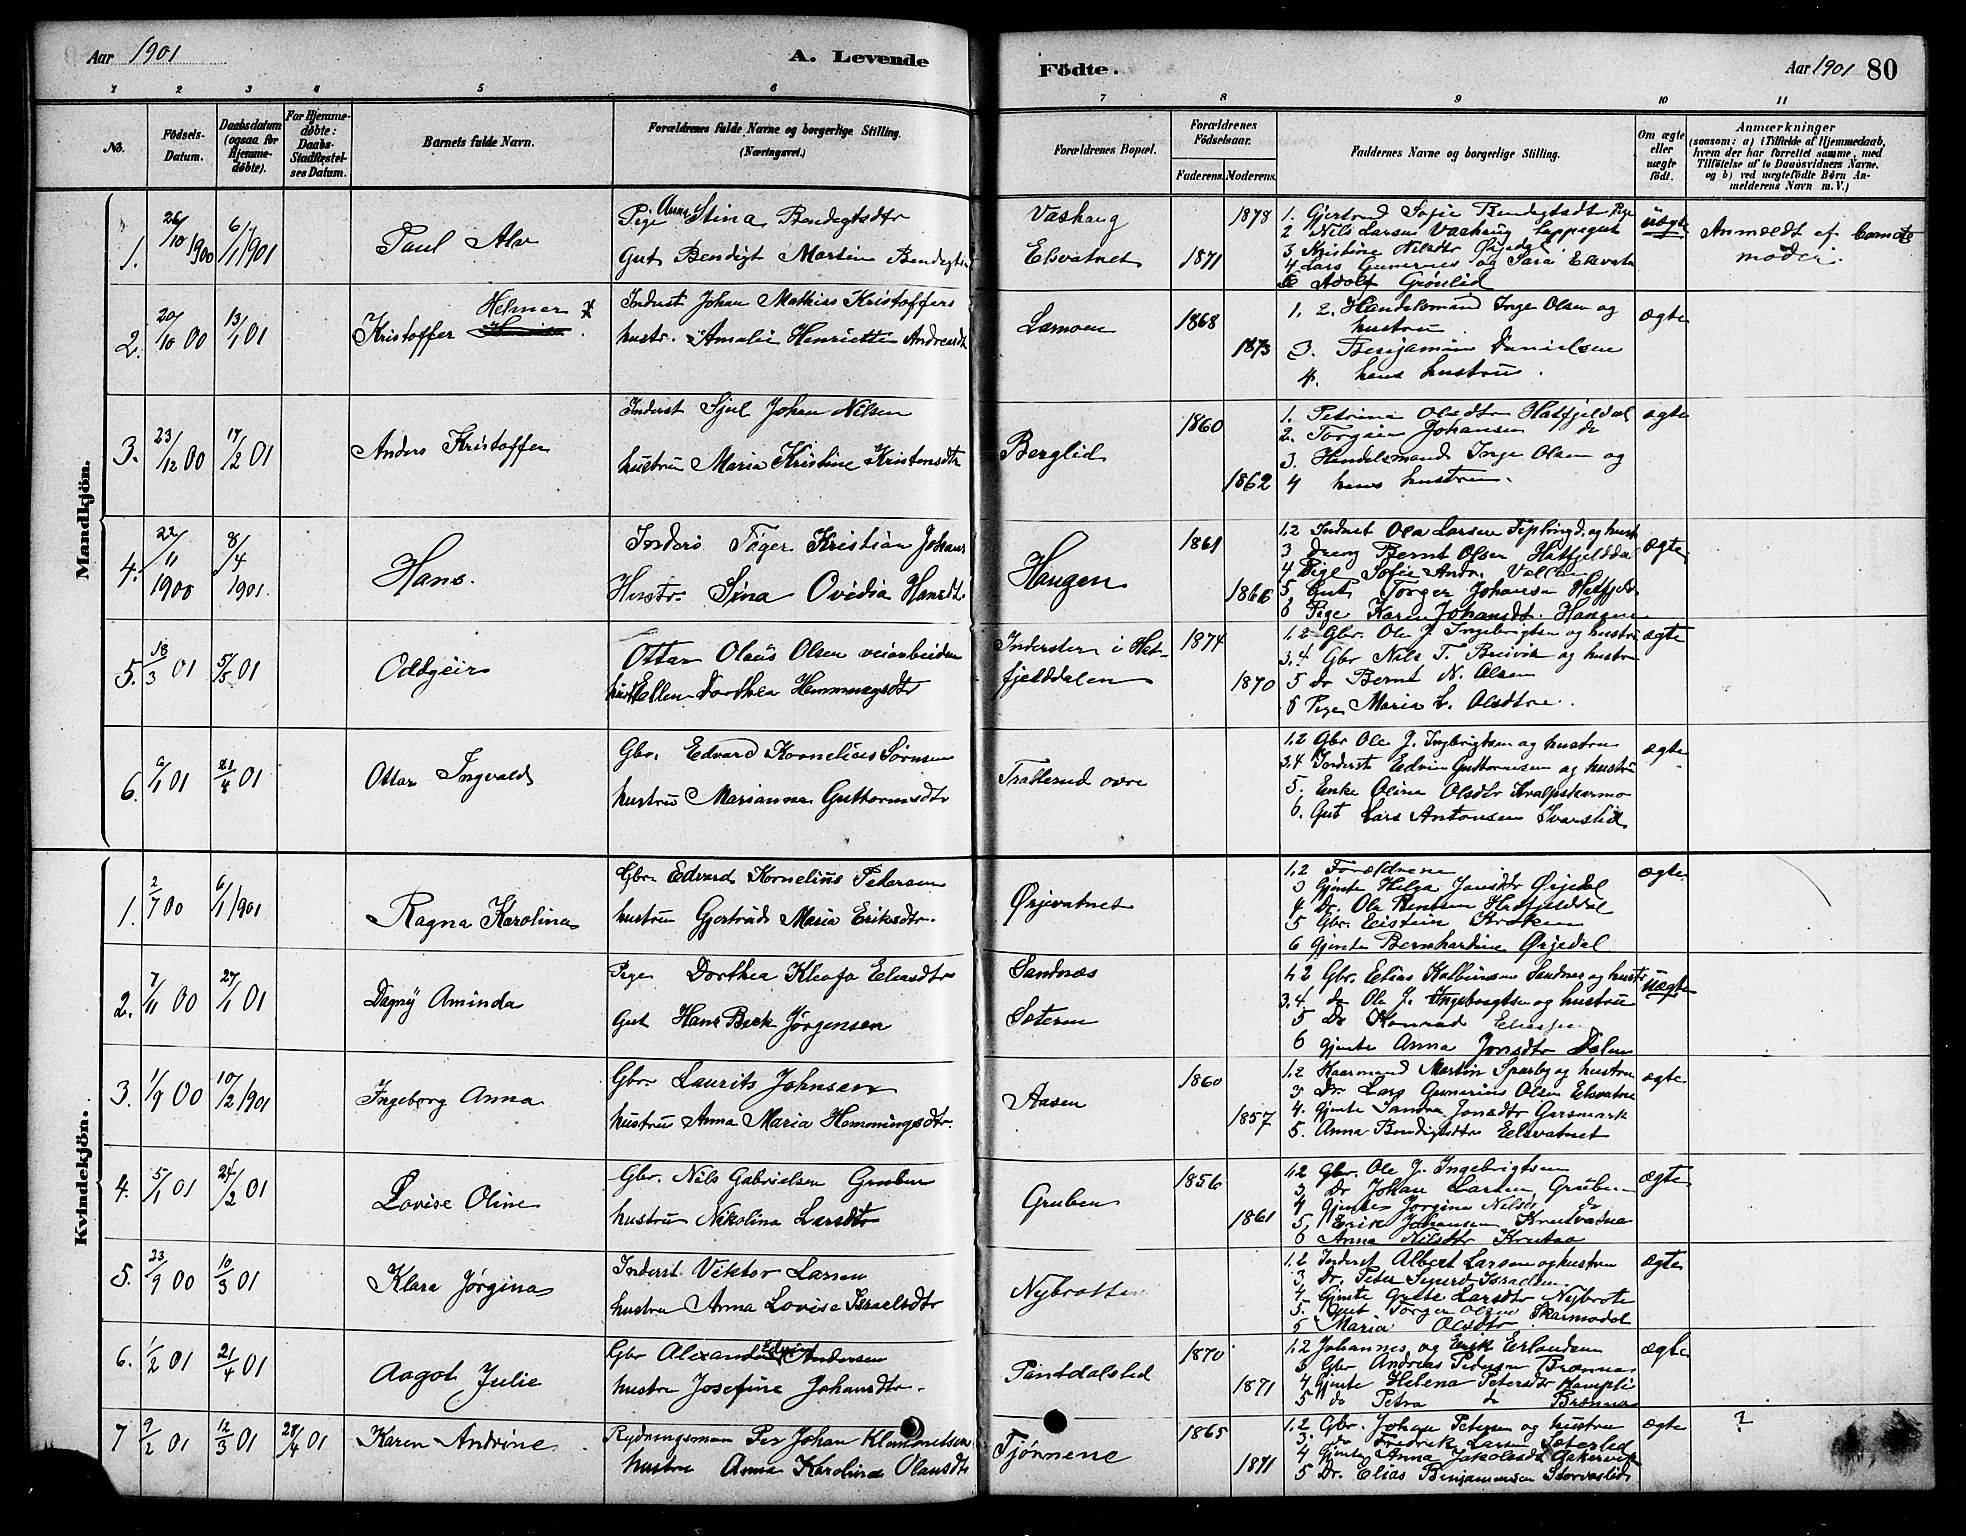 Aar 1901
A. Levende
Födte.
Aar 1901 80
1 2 3 4 5 6 7 8 9 10 11
No.
Födsels-Datum.
Daabsdatum (ogsaa for Hjemmedøbte).
For Hjemmedøbte: Daabs-Stadfæstelses Datum.
Barnets fulde Navn.
Forældrenes fulde Navne og borgerlige Stilling.
(Næringsvei.)
Forældrenes Bopæl.
Forældrenes Födselsaar.
Faderens. Moderens.
Faddernes Navne og borgerlige Stilling.
Om ægte eller uægte födt.
Anmærkninger
(saasom: a) i Tilfælde af Hjemmedaab,
hvem der har forrettet samme, med
Tilföielse af to Daabsvidners Navne,
og b) ved uægtefödte Börn Anmelderens Navn m. V.)
Mandkjön.
1. 26/10 1900 6/1 1901 Paul Alv
Pige Anne Stina Bendigtsdtr
Gut Bendigt Martin
Vashaug
Elsvatnet
1871 1878
1. Gjertrud Sofie Bendigtsdt Pige
2 Nils Larsen Vashaug
3 Kristine Nilsdtr Ørjedal
4 Lars Gunerius og Sara Elsvatn
6 Adolf Grönlid
uægte
Anmeldt af
moder.
2. 20/10 00 13/1 01 Kristoffer Helmer
Inderst Johan Mathias Kristoffers
hustr. Amalie Henriette Andreasdt
1868 1873
1. 2. Handelsmand Inge Olsen og
hustru
3. Benjamin Danielsen
4. hans hustru.
ægte
3. 23/12 00 17/2 01 Anders Kristoffer
Inderst Sjul Johan Nilsen
hustru Maria Kristine Kristensdtr
Berglid
1860 1862
1. Petrine Olsdtr Hatfjeldal
2. Torger Johansen do
3. Handelsmand Inge Olsen og
4 hans hustru.
ægte
4. 22/11 1900 8/4 1901. Hans.
Töger Kristian Johans
Hustr. Sina Ovidia Hansdt
Haugen
1861 1866
1.2 Inderst Ole Larsen
3 dreng Bernt Olsen Hatfjelddal
4 Pige Sofie Andr.
5 Gut Torger Johansen Hatfjeld
6 Pige Karen Johansdt. Haugen
ægte
5. 18/3 01 5/5 01 Oddgeir
Ottar Olaus Olsen veiarbeider
hustr Ellen Dorthea Hemmingsdtr
Inderster i Hat-
fjelddalen
1874 1870
1.2 Gbr. Ole J. Ingebrigtsen og hustru
3.4 Gbr Nils T. Breivik og hustru
5 Dr Bernt N. Olsen
6 Pige Marie L. Olsdtr.
ægte
6. 6/1 01 21/4 01 Ottar Ingvald
Gbr. Edvard Kornelius Sörnsen
hustru Marianna Guttormsdtr
Trallerud övre
1.2 Gbr Ole J. Ingbrigtsen og hustru
3.4 Inderst Edvin Guttormsen og hustru
5. Enke Oline Olsdtr Kvalpskarmo
6. Gut Lars Antonsen Svarslid
ægte
Kvindekjön.
1. 2/7 00 6/1 1901 Ragna Karolina
Gbr. Edvard Kornelius Petersen
hustru Gjertrud Maria Eriksdtr.
Ørjevatnet
1.2 Forældrene
3 Gjente Helga Jonsdtr Ørjedal
4 Dr. Ole Bentsen Hatfjelddal
5 Gbr. Eistein Kroken
6 Gjente Bernhardine Ørjedal
ægte
2. 7/11 00 27/1 01 Dagny Aminda
Pige Dorthea Kleofa Eliasdtr
Gut Hans Beck Jørgensen
Sandnæs
Sæteren
1.2 Gbr. Elias Sandnes og hustr
3.4. do Ole J. Ingebrigtsen og hustru
5 Dr Konrad
6 Gjente Anna Jonsdtr Dalen
uægte
3. 1/9 00 10/2 1901 Ingeborg Anna
Gbr Laurits Johnsen
hustru Anna Maria Hemmingsdtr.
Aasen
1860 1857
1.2 Haarmand Martin Sparby og hustru
3 Dr. Lars Gunerius Olsen Elsvatne
4. Gjente Sandra Jonsdtr Gersmark
5. Anna Bendigtsdtr Elsvatnet
ægte
4. 5/1 01 24/2 01 Lovise Oline
Gbr. Nils Gabrielsen Gruben
hustru Nikolina Larsdtr
Gruben
1856 1861
1.2 Gbr. Ole J. Ingebrigtsen
3 Dr Johan Larsen Gruben
4 Gjente Jorgina Nilsd do
5. Erik Johansen Krutvatne
6 Anna Nilsdtr Krutaa
ægte
5. 23/9 00 10/3 01 Klara Jørgina
Inderst. Viktor Larsen
hustru Anna Lovise Israelsdtr
Nybrotten
1.2 Inderst Albert Larsen og hustru
3 Dr. Peter Sigurd Israelsen
4 Gjente Gurte Larsdtr Nybrote
5. Gut Torger Olsen Skarmodal
5 Maria Olsdtr
ægte
6. 1/2 01 21/4 01 Aagot Julie
Gbr Alexander Edvard Andersen
hustru Josefine Johansdtr.
Pantdalslid
1870 1871
1.2 Johannes og Erik Erlandsen
3 Gbr Andreas Pedersen Brænna
4 Gjente Helena Petersdtr Kampli
5 do Petra do Brænna
ægte
7 9/2 01 12/3 01 28/4 01 Karen Andrine
Rydningsman Per Johan Klemmetsen
hustru Anna Karolina Olausdtr
Tjørnene
1865 1871
1.2. Gbr. Johan Petersen og hustru
3. do Fredrik Larsen Sæterlid
4 Gjente Anna Jakobsdt Aakervik
5 Dr. Elias Benjaminsen Storvaslid
ægte
?